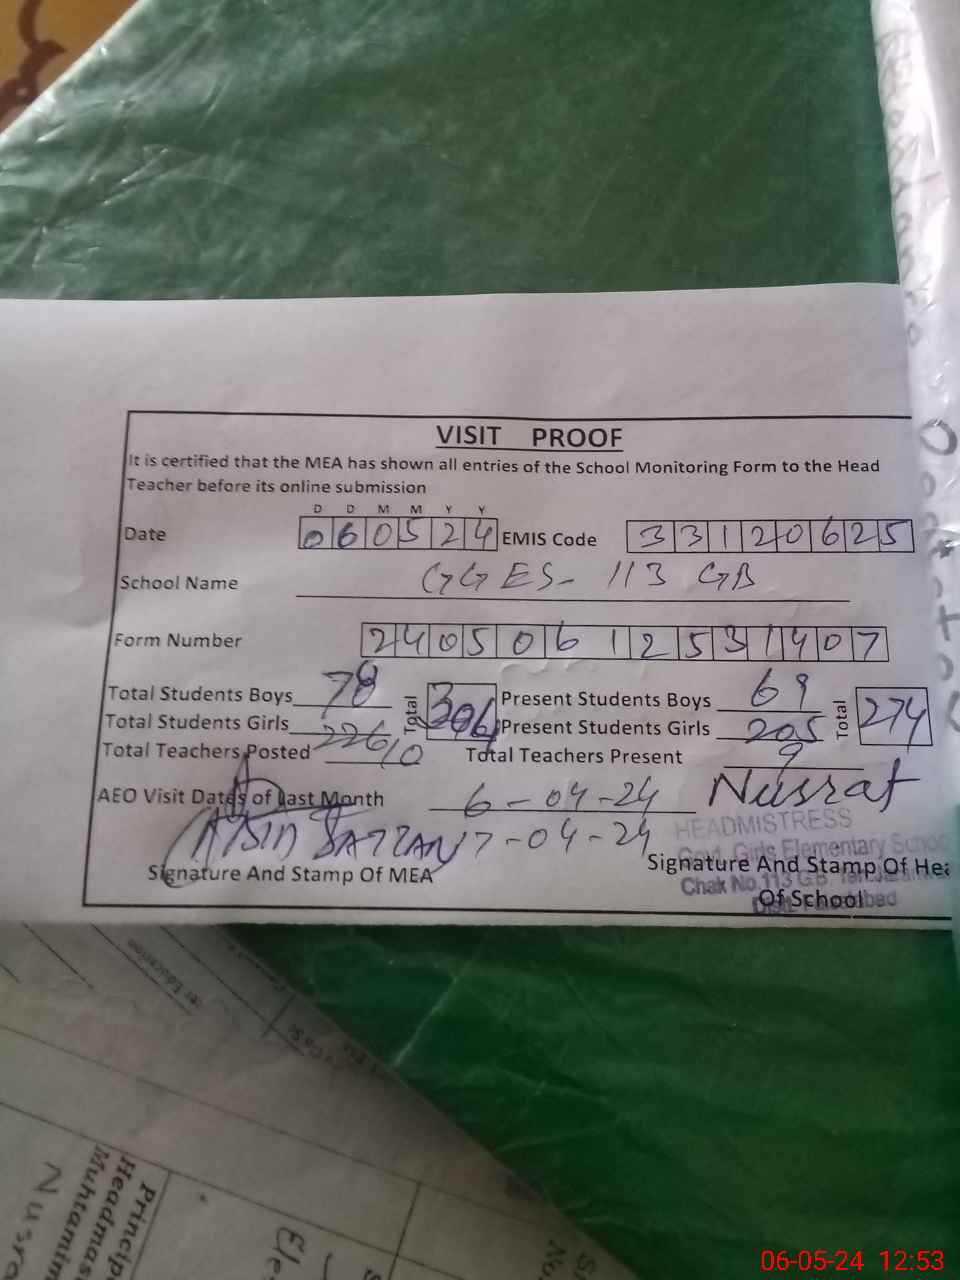 VISIT PROOF
It is certified that the MEA has shown all entries of the School Monitoring Form to the Head
Teacher before its online submission
D D M M Y Y
Date 060524 EMIS Code 33120625
School Name GGES- 113 GB
Form Number 24050612531407
Total Students Boys 78 Total 304 Present Students Boys 69 Total 274
Total Students Girls 226 Present Students Girls 205
Total Teachers Posted 10 Total Teachers Present 9
AEO Visit Dates of last Month 6-04-24 Nusrat
17-04-24 HEADMISTRESS
Govt. Girls Elementary School
Signature And Stamp Of MEA Signature And Stamp Of Hea
Chak No.113 G.B.
Of School
Principa
Headmas
Muhtamim
Nusra
Ele
06-05-24 12:53